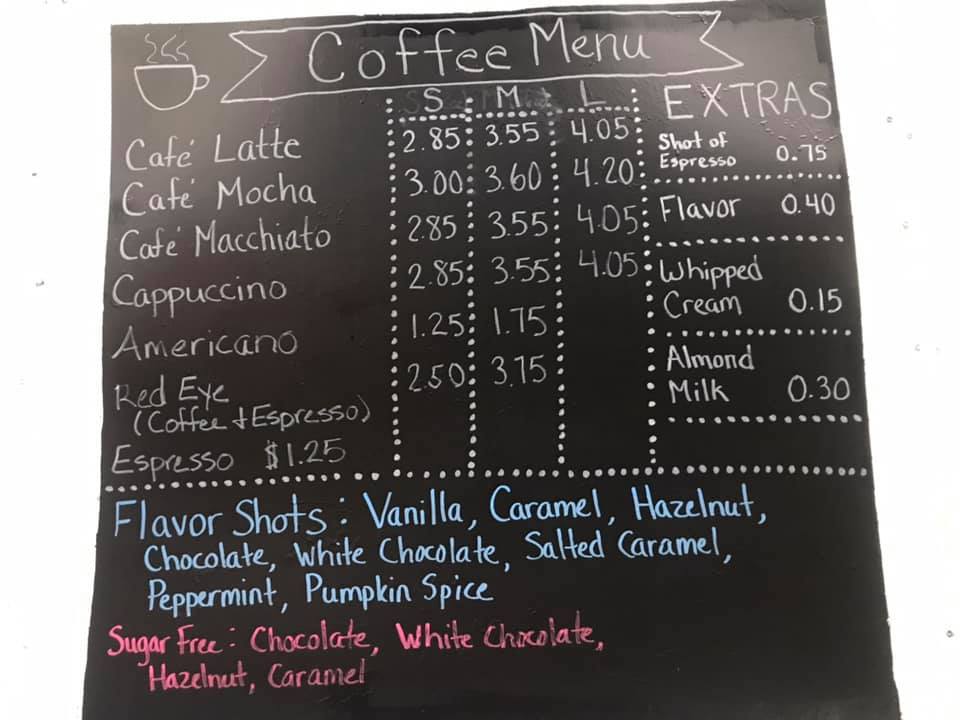 Coffee Menu
S M L
Café Latte 2.85 3.55 4.05
Café Mocha 3.00 3.60 4.20
Café Macchiato 2.85 3.55 4.05
Cappuccino 2.85 3.55 4.05
Americano 1.25 1.75
Red Eye 2.50 3.75
(Coffee + Espresso)
Espresso $1.25
EXTRAS
Shot of
Espresso 0.75
Flavor 0.40
Whipped
Cream 0.15
Almond
Milk 0.30
Flavor Shots: Vanilla, Caramel, Hazelnut,
Chocolate, White Chocolate, Salted Caramel,
Peppermint, Pumpkin Spice
Sugar Free: Chocolate, White Chocolate,
Hazelnut, Caramel